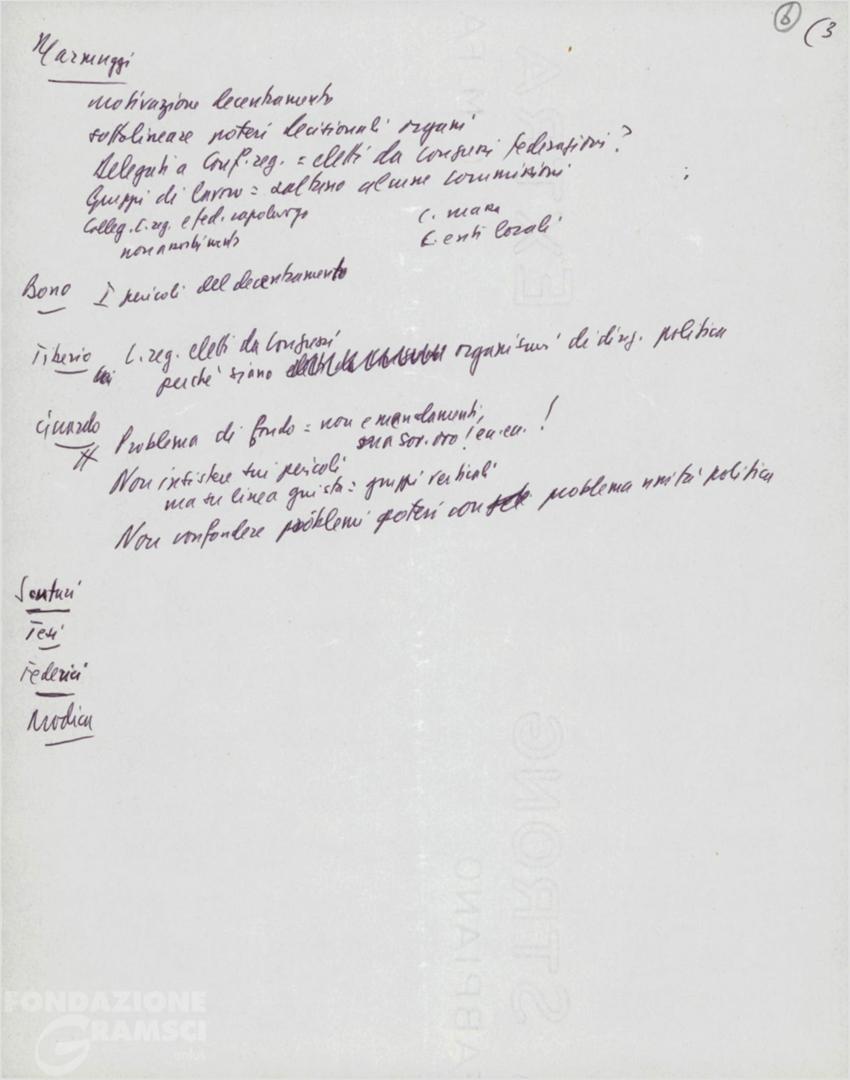 6 (3
Marmuggi
motivazione decentramento
sottolineare poteri decisionali organi
Delegati a Conf. reg. = eletti da congressi federazioni?
Gruppi di lavoro = saltano alcune commissioni
Colleg. C. reg. e fed. capoluogo
non assorbimento
C. mass
C. enti locali
Bono I pericoli del decentramento
Tiberio C. reg. eletti da Congressi
perché siano organismi di direz. politica
Ciuardo Problema di fondo = non emendamenti,
Non insistere sui pericoli
ma su linea giusta = gruppi verticali
Non confondere problemi poteri con problema unità politica
Santuri
Tesi
Federici
Modica
EXTRA
STRONG
FABRIANO
FONDAZIONE
GRAMSCI
onlus